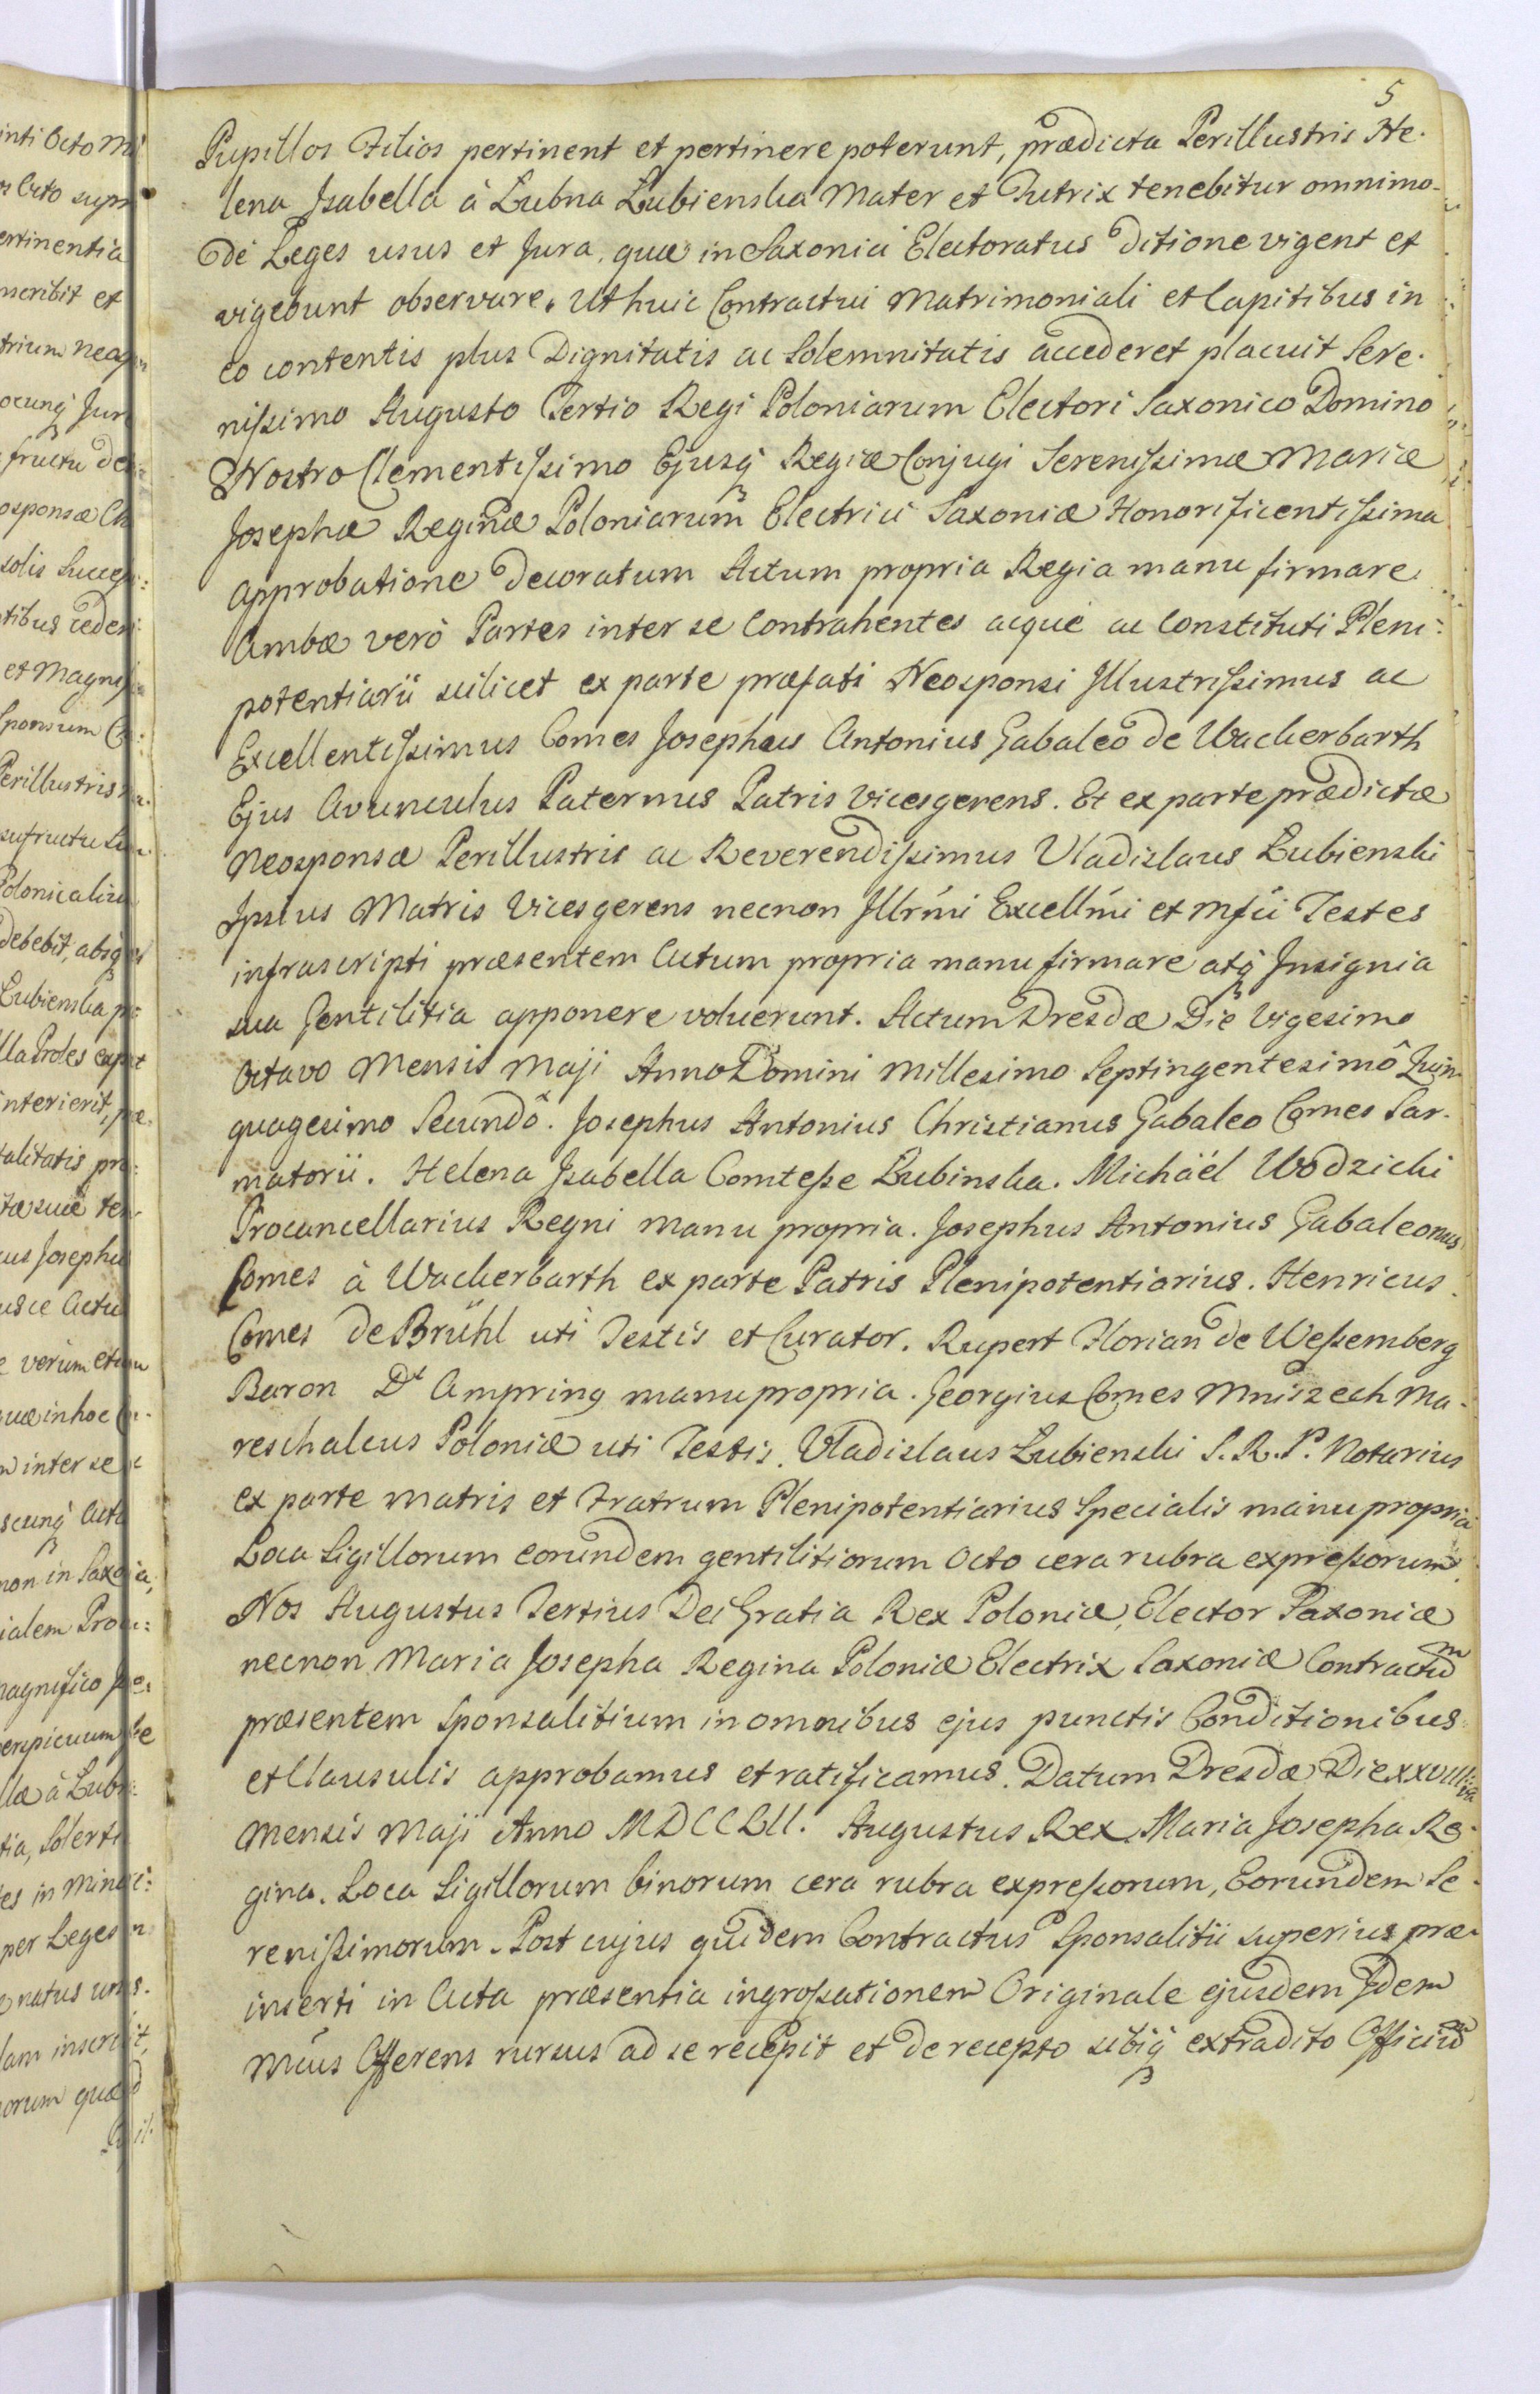 5
Pupillos Filios pertinent et pertinere poterunt, prædicta Perillustris He-
lena Isabella à Łubna Łubienska Mater et Tutrix tenebitur omnimo-
dè Leges usus et Jura, quæ in Saxonici Electoratus ditione vigent et
vigebunt observare. Ut huic Contractui Matrimoniali et Capitibus in
eo contentis plus Dignitatis ac Solemnitatis accederet placuit Sere-
nissimo Augusto Tertio Regi Poloniarum Electori Saxonico Domino
Nostro Clementissimo Ejusq Regiæ Conjugi Serenissimæ Mariæ
Josephæ Reginæ Poloniarum Electrici Saxoniæ Honorificentissima
approbatione decoratum Actum propria Regia manu firmare
Ambæ verò Partes inter se Contrahentes æque ac Constituti Pleni-
potentiarii scilicet ex parte præfati Neosponsi Illustrissimus ac
Excellentissimus Comes Josephus Antonius Gabaleo de Wackerbarth
Ejus Avunculus Paternus Patris Vicesgerens. Et ex parte prædictæ
Neosponsæ Perillustris ac Reverendissimus Vladislaus Łubienski
Ipsius Matris Vicesgerens necnon Illrmi Excellmi et Mfci Testes
infrascripti præsentem Actum propria manu firmare atq Insignia
sua Gentilitia apponere voluerunt. Actum Dresdæ Die Vigesimo
Octavo Mensis Maji Anno Domini Millesimo Septingentesimô Quin-
quagesimo Secundô. Josephus Antonius Christianus Gabaleo Comes Sar-
matorii. Helena Isabella Comtesse Łubinska. Michäel Wodzicki
Procancellarius Regni manu propria. Josephus Antonius Gabaleonus
Comes à Wackerbarth ex parte Patris Plenipotentiarius. Henricus
Comes de Brühl uti Testis et Curator. Rupert Florian de Wessemberg
Baron Dt Ampring manu propria. Georgius Comes Mniszech Ma-
reschalcus Poloniæ uti Testis. Vladislaus Łubienski S. R. P. Notarius
ex parte Matris et Fratrum Plenipotentiarius Specialis manu propria
Loca Sigillorum eorundem gentilitiorum Octo cera rubra expressorum.
Nos Augustus Tertius Dei Gratia Rex Poloniæ, Elector Saxoniæ
necnon Maria Josepha Regina Poloniæ Electrix Saxoniæ Contractum
præsentem Sponsalitium in omnibus ejus punctis Conditionibus
et Clausulis approbamus et ratificamus. Datum Dresdæ Die XXVIII
Mensis Maji Anno MDCCLII. Augustus Rex. Maria Josepha Re-
gina. Loca Sigillorum binorum cera rubra expressorum, Eorundem Se-
renissimorum. Post cujus quidem Contractus Sponsalitii superius præ-
inserti in Acta præsentia ingrossationem Originale ejusdem Idem
Mcus Offerens rursus ad se recepit et de recepto sibiq extradito Officium